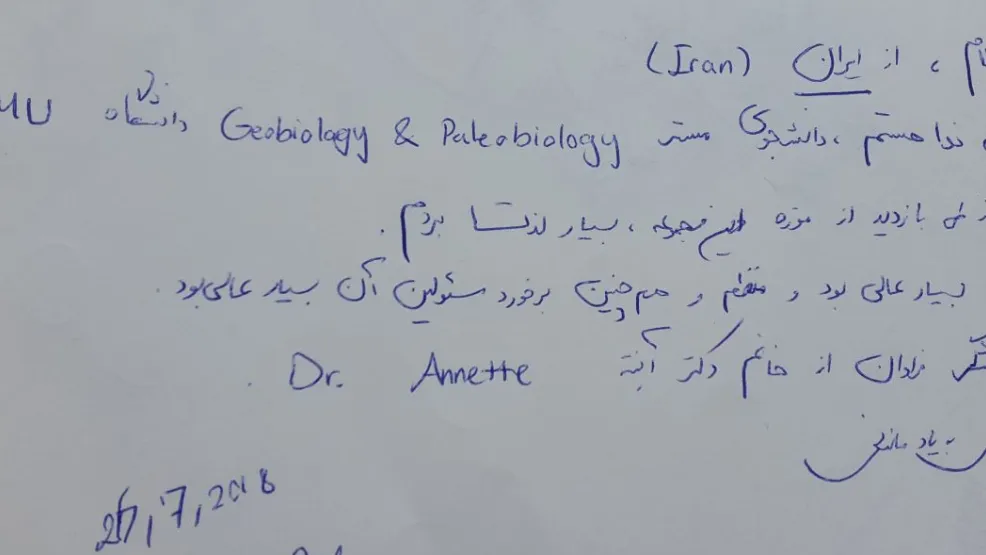 ، از ایران (Iran)
ندا هستم ، دانشجوی مستر Geobiology & Paleobiology دانشگاه MU
طی بازدید از موزه این مجموعه ، بسیار لذت بردم .
بسیار عالی بود و منظم و هم چنین برخورد مسئولین آن بسیار عالی بود .
تشکر فراوان از خانم دکتر آنته Dr. Annette .
به یاد ماندنی
7, 2018